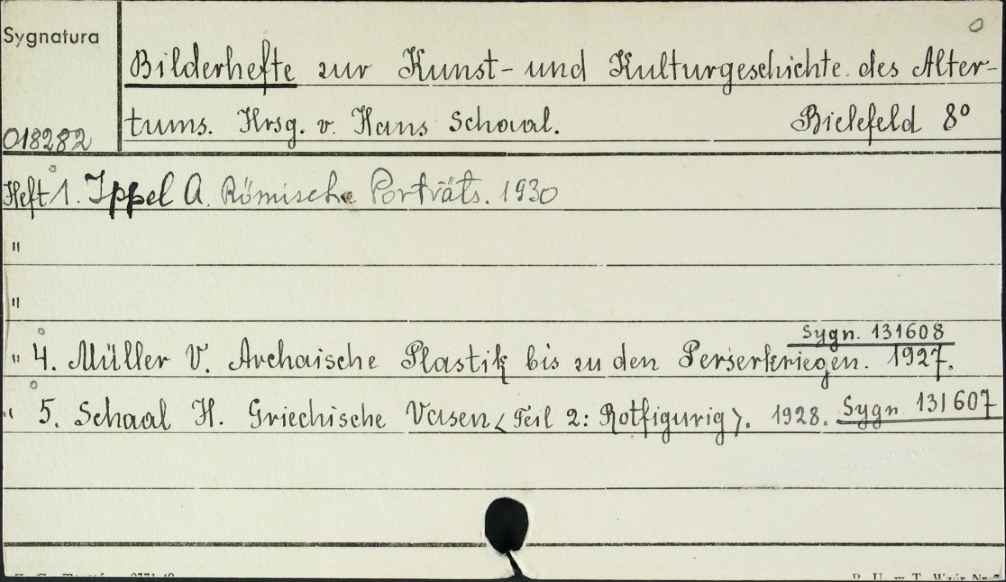 0
Sygnatura
Bilderhefte zur Kunst- und Kulturgeschichte des Alter-
018282 tums. Hrsg. v. Hans Schaal. Bielefeld 8°
Heft 1. Ippel A. Römische Porträts. 1930
"
"
Sygn. 131608
" 4. Müller V. Archaische Plastik bis zu den Perserkriegen. 1927.
" 5. Schaal H. Griechische Vasen <Teil 2: Rotfigurig>. 1928. Sygn 131607